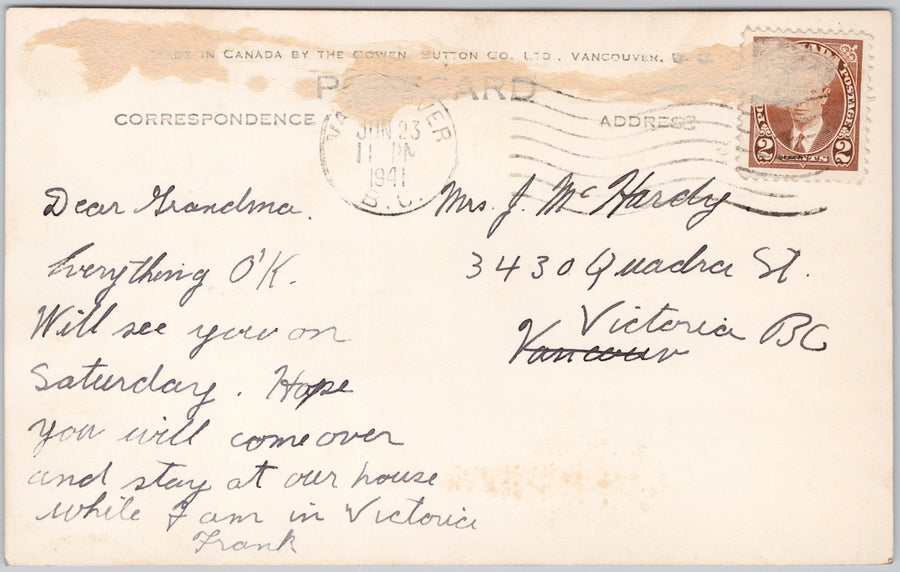 MADE IN CANADA BY THE GOWEN, SUTTON CO. LTD., VANCOUVER, B. C.
POSTCARD
CORRESPONDENCE
ADDRESS
VANCOUVER
JUN 23
11 PM
1941
B.C.
CANADA POSTAGE
2 CENTS 2
Dear Grandma.
Everything O'K.
Will see you on
Saturday. Hope
you will come over
and stay at our house
while I am in Victoria
Frank
Mrs. J. McHardy
3430 Quadra St.
Victoria BC
Vancouv